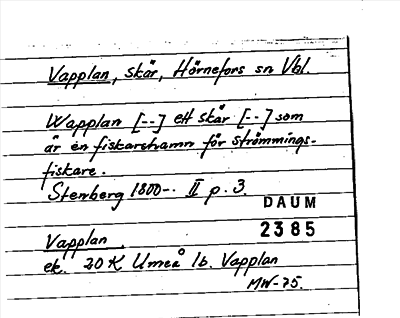 Vapplan, skär, Hörnefors sn Vbl.
Wapplan [--] ett skär [--] som
är en fiskarehamn för strömmings-
fiskare.
Stenberg 1800-. II p. 3.
DAUM
2385
Vapplan.
ek. 20 K Umeå lb. Vapplan
MW-75.